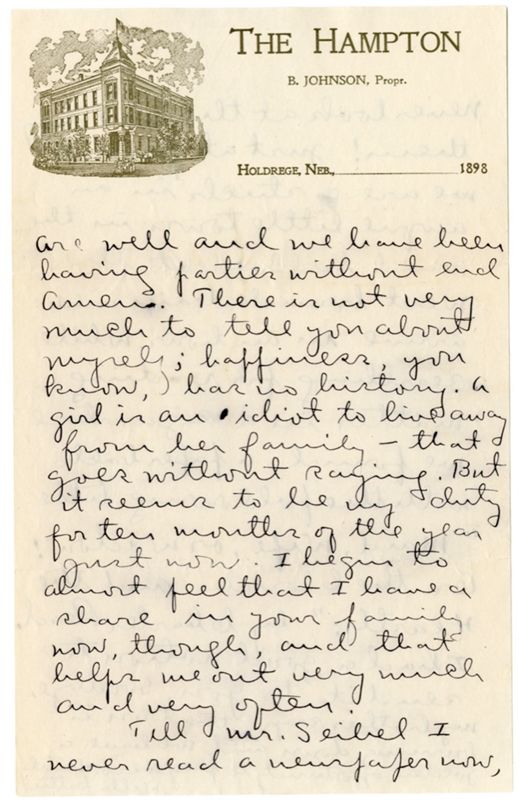 THE HAMPTON
B. JOHNSON, Propr.
HOLDREGE, NEB., 1898
are well and we have been
having parties without end
Amen. There is not very
much to tell you about
myself; happiness, you
know, has no history. A
girl is an idiot to live away
from her family – that
goes without saying. But
it seems to be my duty
for ten months of the year
just now. I begin to
almost feel that I have a
share in your family
now, though, and that
helps me out very much
and very often.
Tell Mr. Seibel I
never read a newspaper now,